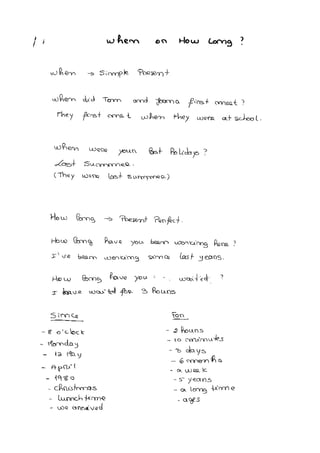 when or How long ?
when → Simple Present
when did Tom and Joana first meet ?
They first met when they were at school.
when were your last holidays ?
Last Summer.
( They were last summer.)
How long → Present Perfect.
How long have you been working here ?
I've been working since last years.
How long have you waited ?
I have waited for 3 hours
Since
- 8 o'clock
- Monday
- 12 May
- April
- 1980
- Christmas
- lunch time
- we arrived
For
- 2 hours
- 10 minutes
- 3 days
- 6 months
- a week
- 5 years
- a long time
- ages